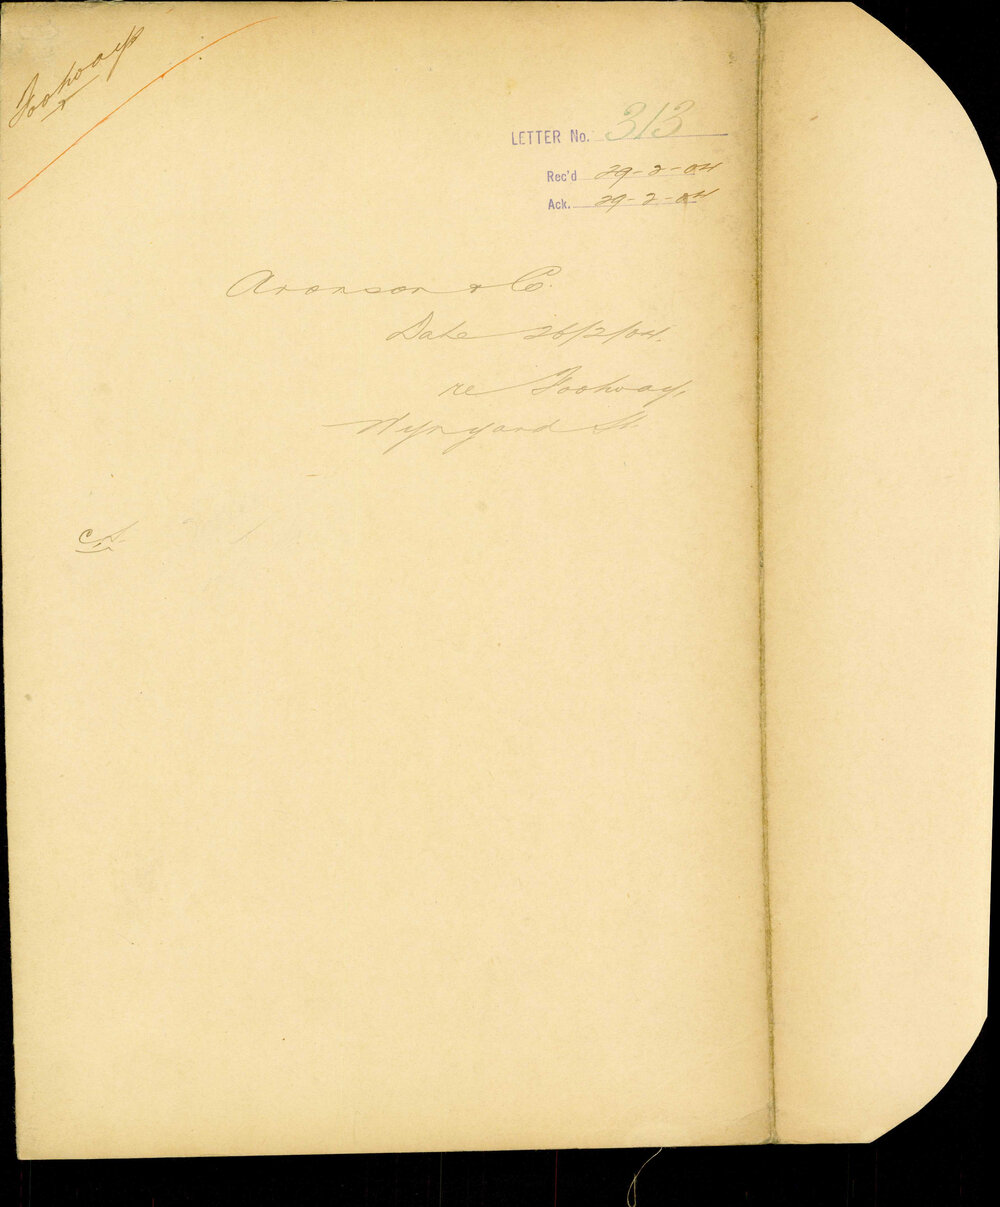 Footways
LETTER No. 313
Rec'd 29-2-04
Ack. 29-2-04
Aronson & Co.
Date 26/2/04.
re Footway,
Wynyard St.